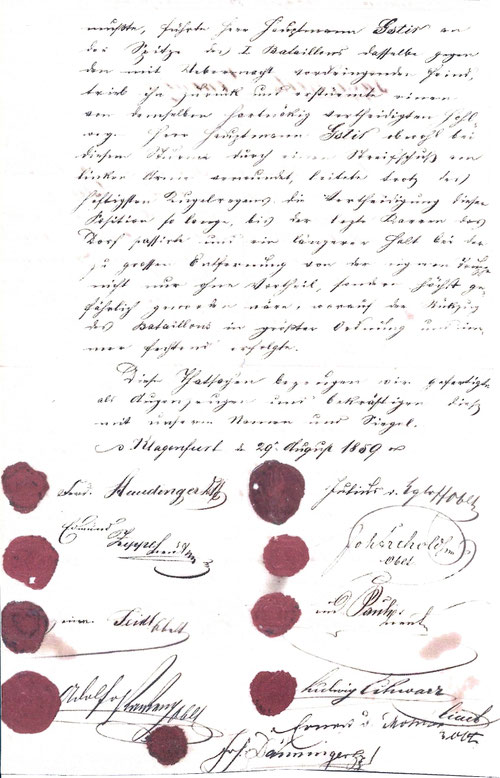 mußte, führte Herr Hauptmann Gstir an
der Spitze des I. Bataillons dasselbe gegen
den mit Uebermacht vordringenden Feind,
trieb ihn zurück und erstürmte einen
von demselben hartnäkig vertheidigten Hohl-
weg. Herr Hauptmann Gstir obwohl bei
diesem Sturme durch einen Streifschuß am
linken Arme verwundet, leitete trotz des
heftigsten Kugelregens die Vertheidigung dieser
Position so lange, bis der lezte Karren das
Dorf passirte und ein längerer Halt bei der
zu grossen Entfernung von der eigenen Truppe
nicht nur ohne Vortheil, sondern höchst ge-
fährlich geworden wäre, worauf der Rükzug
des Bataillons in größter Ordnung und im-
mer fechtend erfolgte.
Diese Thatsachen bezeugen wir gefertigte
als Augenzeugen und bekräftigen dieß
mit unserem Namen und Siegel.
Klagenfurt d. 29. August 1859
Julius v.
Edmund
Oblt
Pauly
Adolf
Ludwig Schwarz